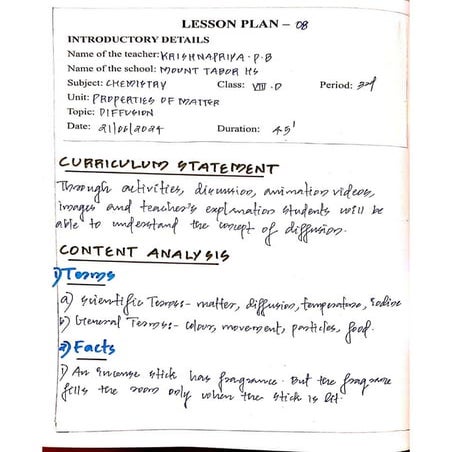 LESSON PLAN - 08
INTRODUCTORY DETAILS
Name of the teacher: KRISHNAPRIYA.P.B
Name of the school: MOUNT TABOR HS
Subject: CHEMISTRY Class: VIII.D Period: 3rd
Unit: PROPERTIES OF MATTER
Topic: DIFFUSION
Date: 21/06/2024 Duration: 45'
CURRICULUM STATEMENT
Through activities, discussion, animation videos,
images and teacher's explanation students will be
able to understand the concept of diffusion.
CONTENT ANALYSIS
1) Terms
a) Scientific Terms:- matter, diffusion, temperature, Iodine
b) General Terms:- colour, movement, particles, food.
2) Facts
1) An incense stick has fragrance. But the fragrance
fills the room only when the stick is lit.